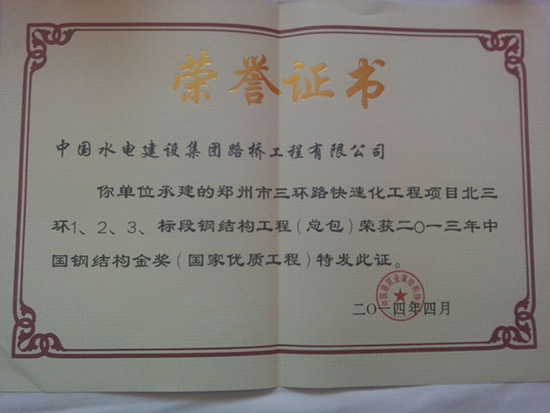 荣誉证书
中国水电建设集团路桥工程有限公司
你单位承建的郑州市三环路快速化工程项目北三
环1、2、3、标段钢结构工程（总包）荣获二〇一三年中
国钢结构金奖（国家优质工程）特发此证。
中国建筑金属结构协会
二〇一四年四月